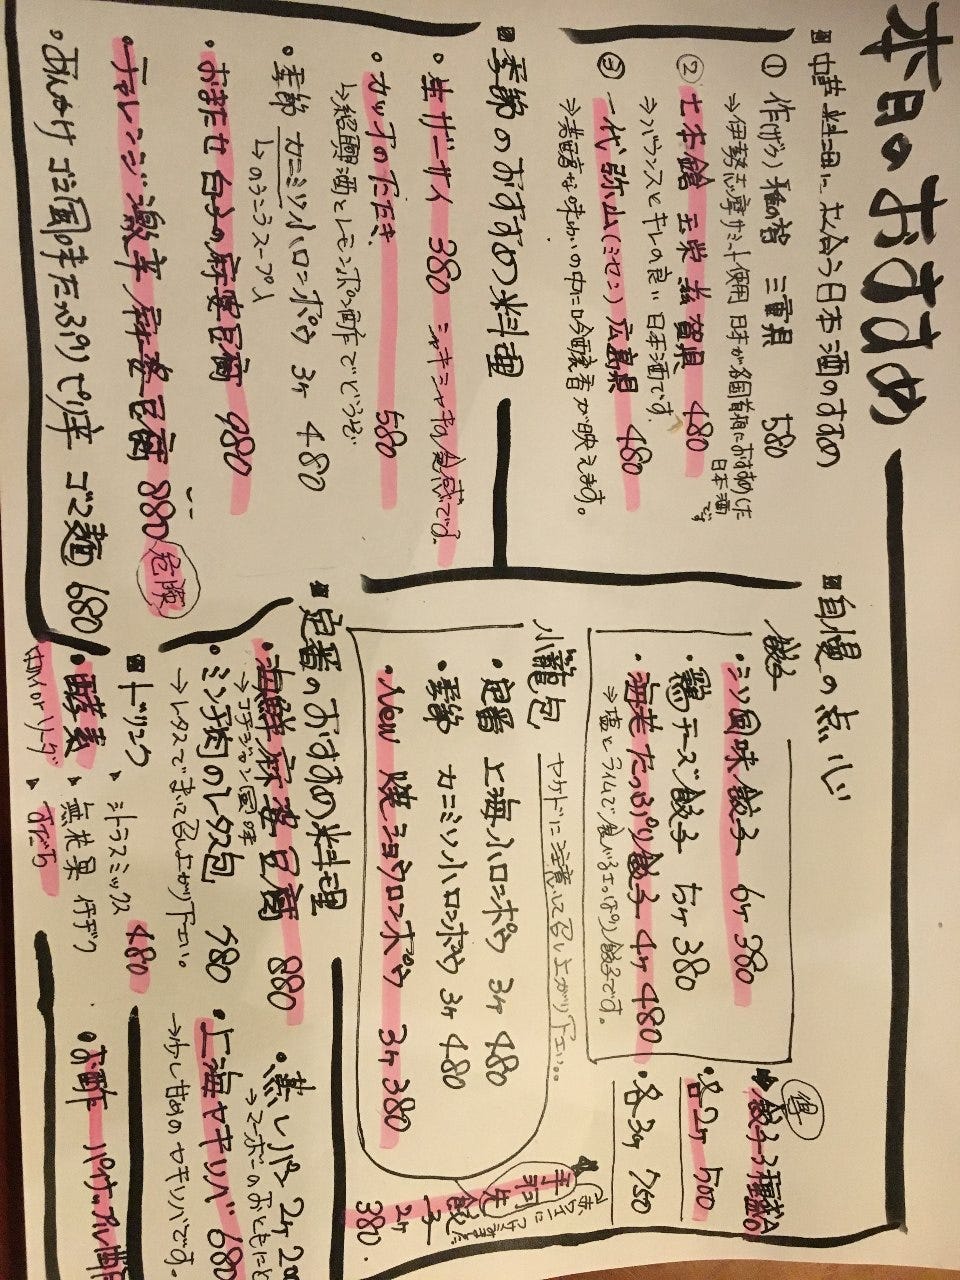 本日のおすすめ
中華料理に合う日本酒のすすめ
① 作(ザク) 穂の智 三重県 580
⇒伊勢志摩サミット使用 日本が各国首相におすすめした日本酒です
② 七本鎗 玉栄 滋賀県 480
⇒バランスとキレの良い日本酒です。
③ 一代弥山(ミセン) 広島県 480
⇒芳醇な味わいの中に吟醸香が映えます。
季節のおすすめ料理
・生ザーサイ 380 シャキシャキの食感です。
・カツオのたたき 580
↳紹興酒とレモンポン酢でどうぞ
・季節 カニミソ小ロンポウ 3ヶ 480
↳のうこうスープ入
・おまたせ 白子の麻婆豆腐 980
・チャレンジ 激辛 麻婆豆腐 880 危険
・あんかけ ゴマ風味たっぷりピリ辛 ゴマ麺 680
自慢の点心
餃子
・ミソ風味餃子 6ヶ 380
・鶏チーズ餃子 5ヶ 380
・海老たっぷり餃子 4ヶ 480
⇒塩とライムで食べるさっぱり餃子です。
得
餃子3種盛
・各2ヶ 500
・各3ヶ 750
小籠包 ヤケドに注意して召し上がり下さい。
・定番 上海小ロンポウ 3ヶ 480
・季節 カニミソ小ロンポウ 3ヶ 480
・New 焼ショウロンポウ 3ヶ 380
手羽先餃子 2ヶ 380
定番のおすすめ料理
・海鮮麻婆豆腐 880
→コチジャン風味
・ミンチ肉のレタス包 780
→レタスでまいて召し上がり下さい。
・蒸しパン 2ヶ 200
→マーボーのおともに
・上海ヤキソバ 680
→少し甘めのヤキソバです。
ドリンク
・酵素 シトラスミックス 480
無花果 イチヂク
すだち
水割 or ソーダ
・お酢 パイナップル酢